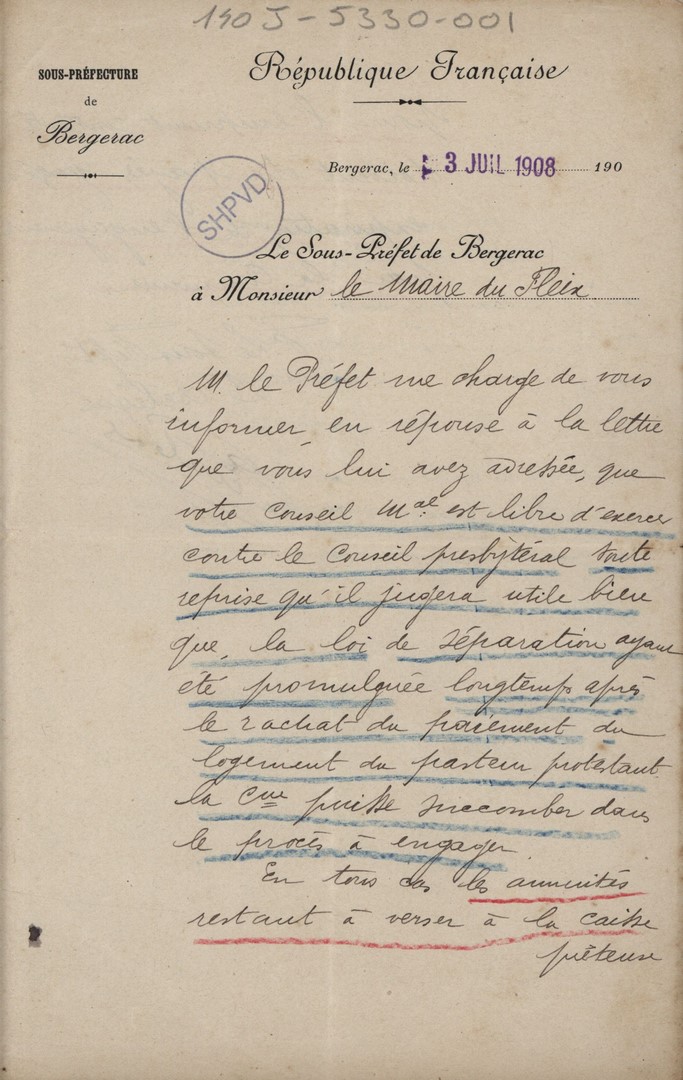 140 J-5330-001
SOUS-PRÉFECTURE
de
Bergerac
République Française
Bergerac, le 3 JUIL 1908 190
SHPVD
Le Sous-Préfet de Bergerac
à Monsieur le Maire du Fleix
M. le Préfet me charge de vous
informer, en réponse à la lettre
que vous lui avez adressée, que
votre Conseil Mal est libre d'exercer
contre le Conseil presbytéral toute
reprise qu'il jugera utile bien
que, la loi de séparation ayant
été promulguée longtemps après
le rachat du paiement du
logement du pasteur protestant
la Cne puisse succomber dans
le procès à engager.
En tous cas les annuités
restant à verser à la caisse
prêteuse